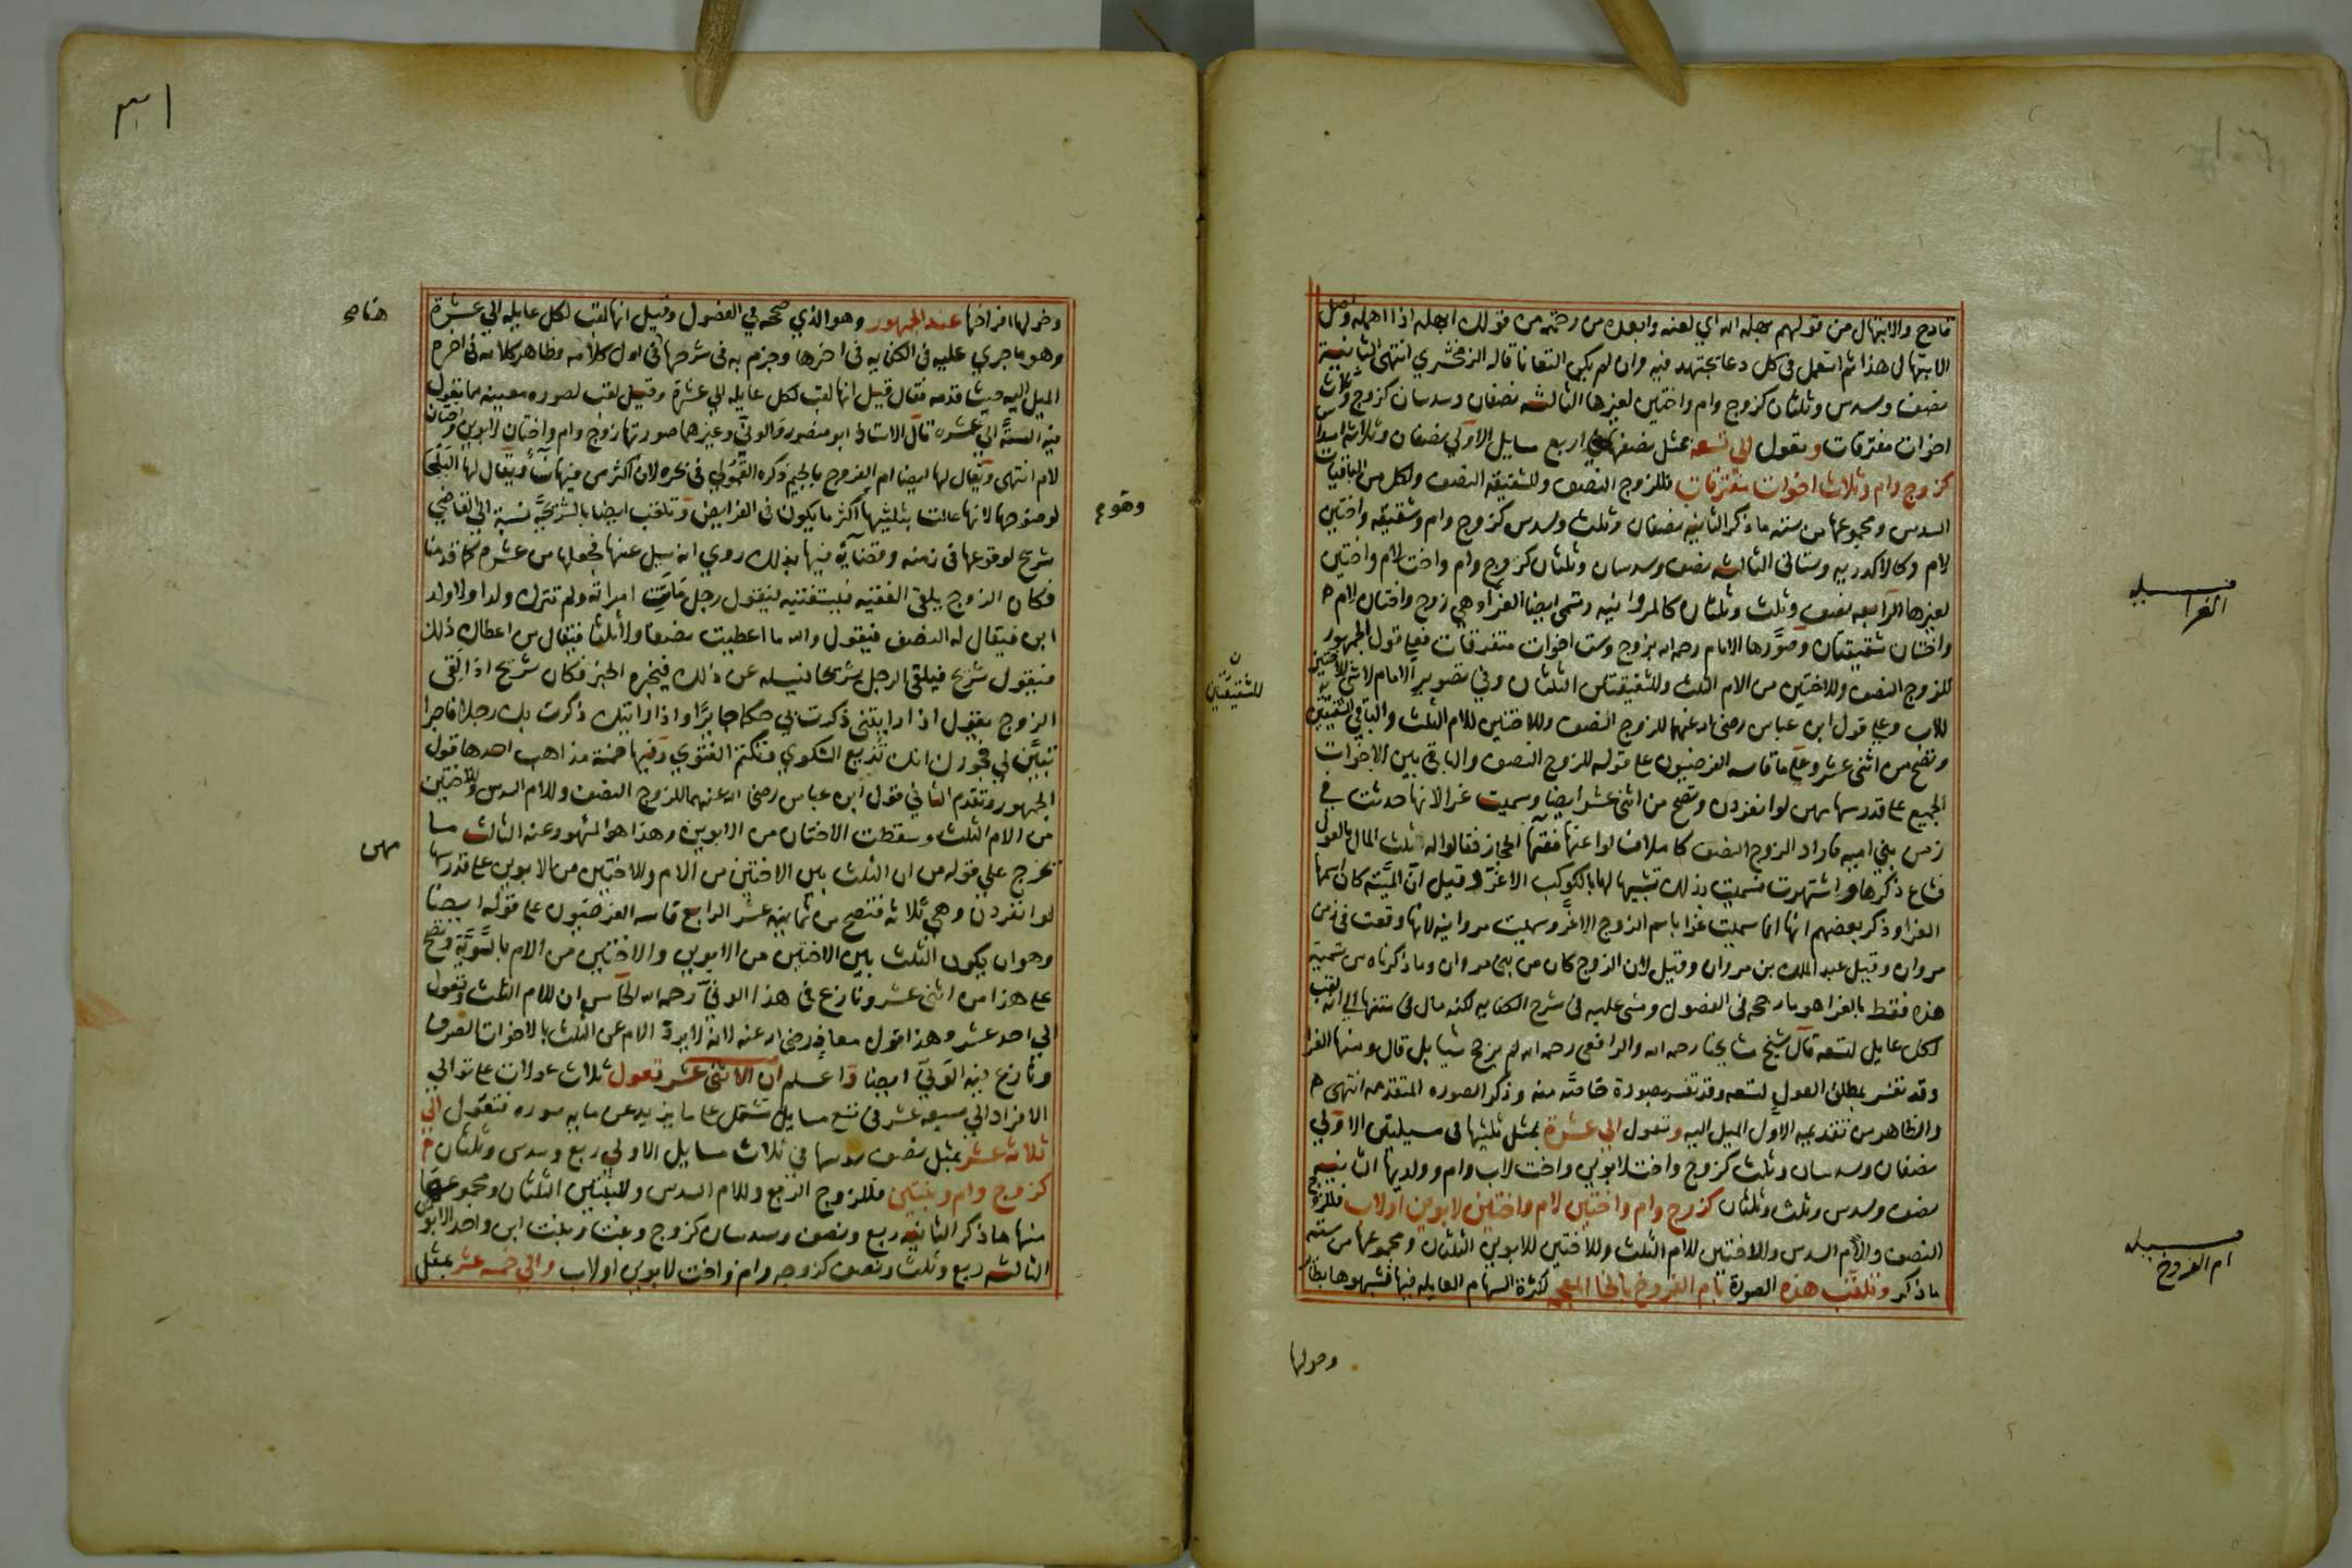 قادح والابتهال من قولهم بهله الله اي لعنه وابعده من رحمته من قولك ابهله اذا اهمله واصل
الابتهال هذا ثم استعمل في كل دعا يجتهد فيه وان لم يكن التعانا قاله الزمخشري انتهى الثانية
نصف وسدس وثلثان كزوج وام واختين لغيرها الثالثه نصفان وسدسان كزوج وثلاث
اخوات مفترقات وتعول الى تسعه بمثل نصفها في اربع مسايل الاولى نصفان وثلاثة اسداس
كزوج وام وثلاث اخوات مفترقات فللزوج النصف وللشقيقه النصف ولكل من الباقيات
السدس ومجموعها من سته ما ذكر الثانيه نصفان وثلث وسدس كزوج وام وشقيقه واختين
لام وكالاكدريه وستاتي الثالثه نصف وسدسان وثلثان كزوج وام واخت لام واختين
لغيرها الرابعه نصف وثلث وثلثان كالمروانيه وتسمى ايضا الغرا وهي زوج واختان لام
واختان شقيقتان وصورها الامام رحمه الله بزوج وست اخوات متفرقات فعلى قول الجمهور
للزوج النصف وللاختين من الام الثلث وللشقيقتين الثلثان وفي تصوير الامام لا شي للاختين
للاب وعلى قول ابن عباس رضي الله عنهما للزوج النصف وللاختين للام الثلث والباقي للشقيقتين
وتصح من اثنى عشر وعلى ما قاسه الفرضيون على قوله للزوج النصف والباقي بين الاخوات
الجميع على قدر سهامهن لو انفردن وتصح من اثنى عشر ايضا وسميت غرا لانها حدثت في
زمن بني اميه فاراد الزوج النصف كاملا فسالوا عنها فقها الحجاز فقالوا له ثلث المال بالعول
فشاع ذكرها واشتهرت فسميت بذلك تشبيها لها بالكوكب الاغر وقيل ان الميته كان اسمها
الغرا وذكر بعضهم انها انما سميت غرا باسم الزوج الاغر وسميت مروانيه لانها وقعت في زمن
مروان وقيل عبد الملك بن مروان وقيل لان الزوج كان من بني مروان وما ذكرناه من تسمية
هذه فقط بالغرا هو ما رجحه في الفصول ومشى عليه في شرح الكفايه لكنه مال في متنها الى انه لقب
لكل عايل لتسعه قال شيخ مشايخنا رحمه الله والرافعي رحمه الله لم يرجح شيا بل قال ومنها الغرا
وقد تفسر بمطلق العول لتسعه وقد تفسر بصورة خاصة منه وذكر الصوره المتقدمه انتهى
والظاهر من تقديمه الاول الميل اليه وتعول الى عشرة بمثل ثلثيها في مسيلتين الاولى
نصفان وسدسان وثلث كزوج واخت لابوين واخت لاب وام وولديها الثانيه
نصف وسدس وثلث وثلثان كزوج وام واختين لام واختين لابوين او لاب فللزوج
النصف وللام السدس وللاختين للام الثلث وللاختين للابوين الثلثان ومجموعها من سته
ما ذكر وتلقب هذه الصورة بام الفروخ بالخا المعجمه لكثرة السهام العايله فيها فشبهوها بطاير
وحولها
مسيله
الغرا
مسيله
ام الفروخ
للشقيقتين
٣١
وحولها افراخها عند الجمهور وهو الذي صححه في الفصول وقيل انها لقب لكل عايله الى عشرة
وهو ما جرى عليه في الكفايه في اخرها وجزم به في شرحها في اول كلامه وظاهر كلامه في اخره
الميل اليه حيث قدمه فقال قيل انها لقب لكل عايله الى عشرة وقيل لقب لصوره معينه مما تعول
فيه الستة الى عشره قال الاستاذ ابو منصور والوني وغيرهما صورتها زوج وام واختان لابوين واختان
لام انتهى ويقال لها ايضا ام الفروج بالجيم ذكره القمولي في بحره لان اكثر من فيها نسآء ويقال لها البلجا
لوضوحها لانها عالت بثلثيها اكثر ما يكون في الفرايض وتلقب ايضا بالشريحيه نسبة الى القاضي
شريح لوقوعها في زمنه وقضايه فيها بذلك روي انه سيل عنها فجعلها من عشره كما قدمنا
فكان الزوج يلقى الفقيه فيستفتيه فيقول رجل ماتت امراته ولم تترك ولدا ولا ولد
ابن فيقال له النصف فيقول والله ما اعطيت نصفا ولا ثلثا فيقال من اعطاك ذلك
فيقول شريح فيلقى الرجل شريحا فيسله عن ذلك فيخبره الخبر فكان شريح اذا لقى
الزوج يقول اذا رايتني ذكرت بي حكما جايرا واذا رايتك ذكرت بك رجلا فاجرا
تبين لي فجورك انك تذيع الشكوى وتكتم الفتوى وفيها خمسة مذاهب احدها قول
الجمهور وتقدم الثاني قول ابن عباس رضي الله عنهما للزوج النصف وللام السدس وللاختين
من الام الثلث وسقطت الاختان من الابوين وهذا هو المشهور عنه الثالث ما
تخرج على قوله من ان الثلث بين الاختين من الام وللاختين من الابوين على قدر سها
لو انفردن وهي ثلاثه فتصح من ثمانية عشر الرابع قاسه الفرضيون على قوله ايضا
وهو ان يكون الثلث بين الاختين من الابوين والاختين من الام بالسوية وتصح
على هذا من اثنى عشر ونازع في هذا الوني رحمه الله الخامس ان للام الثلث وتعول
الى احد عشر وهذا قول معاذ رضي الله عنه لانه لا يرد الام عن الثلث بالاخوات الصرف
ونازع فيه الوني ايضا واعلم ان الاثنى عشر تعول ثلاث عولات على توالي
الافراد الى سبعة عشر في تسع مسايل تشتمل على ما يزيد عن مايه صوره فتعول الى
ثلاثة عشر بمثل نصف سدسها في ثلاث مسايل الاولى ربع وسدس وثلثان
كزوج وام وبنتين فللزوج الربع وللام السدس وللبنتين الثلثان ومجموعها
منها ما ذكر الثانيه ربع ونصف وسدسان كزوج وبنت وبنت ابن واحد الابوين
الثالثه ربع وثلث ونصف كزوجه وام واخت لابوين او لاب والى خمسه عشر بمثل
هنا صح
وقوع
مهن